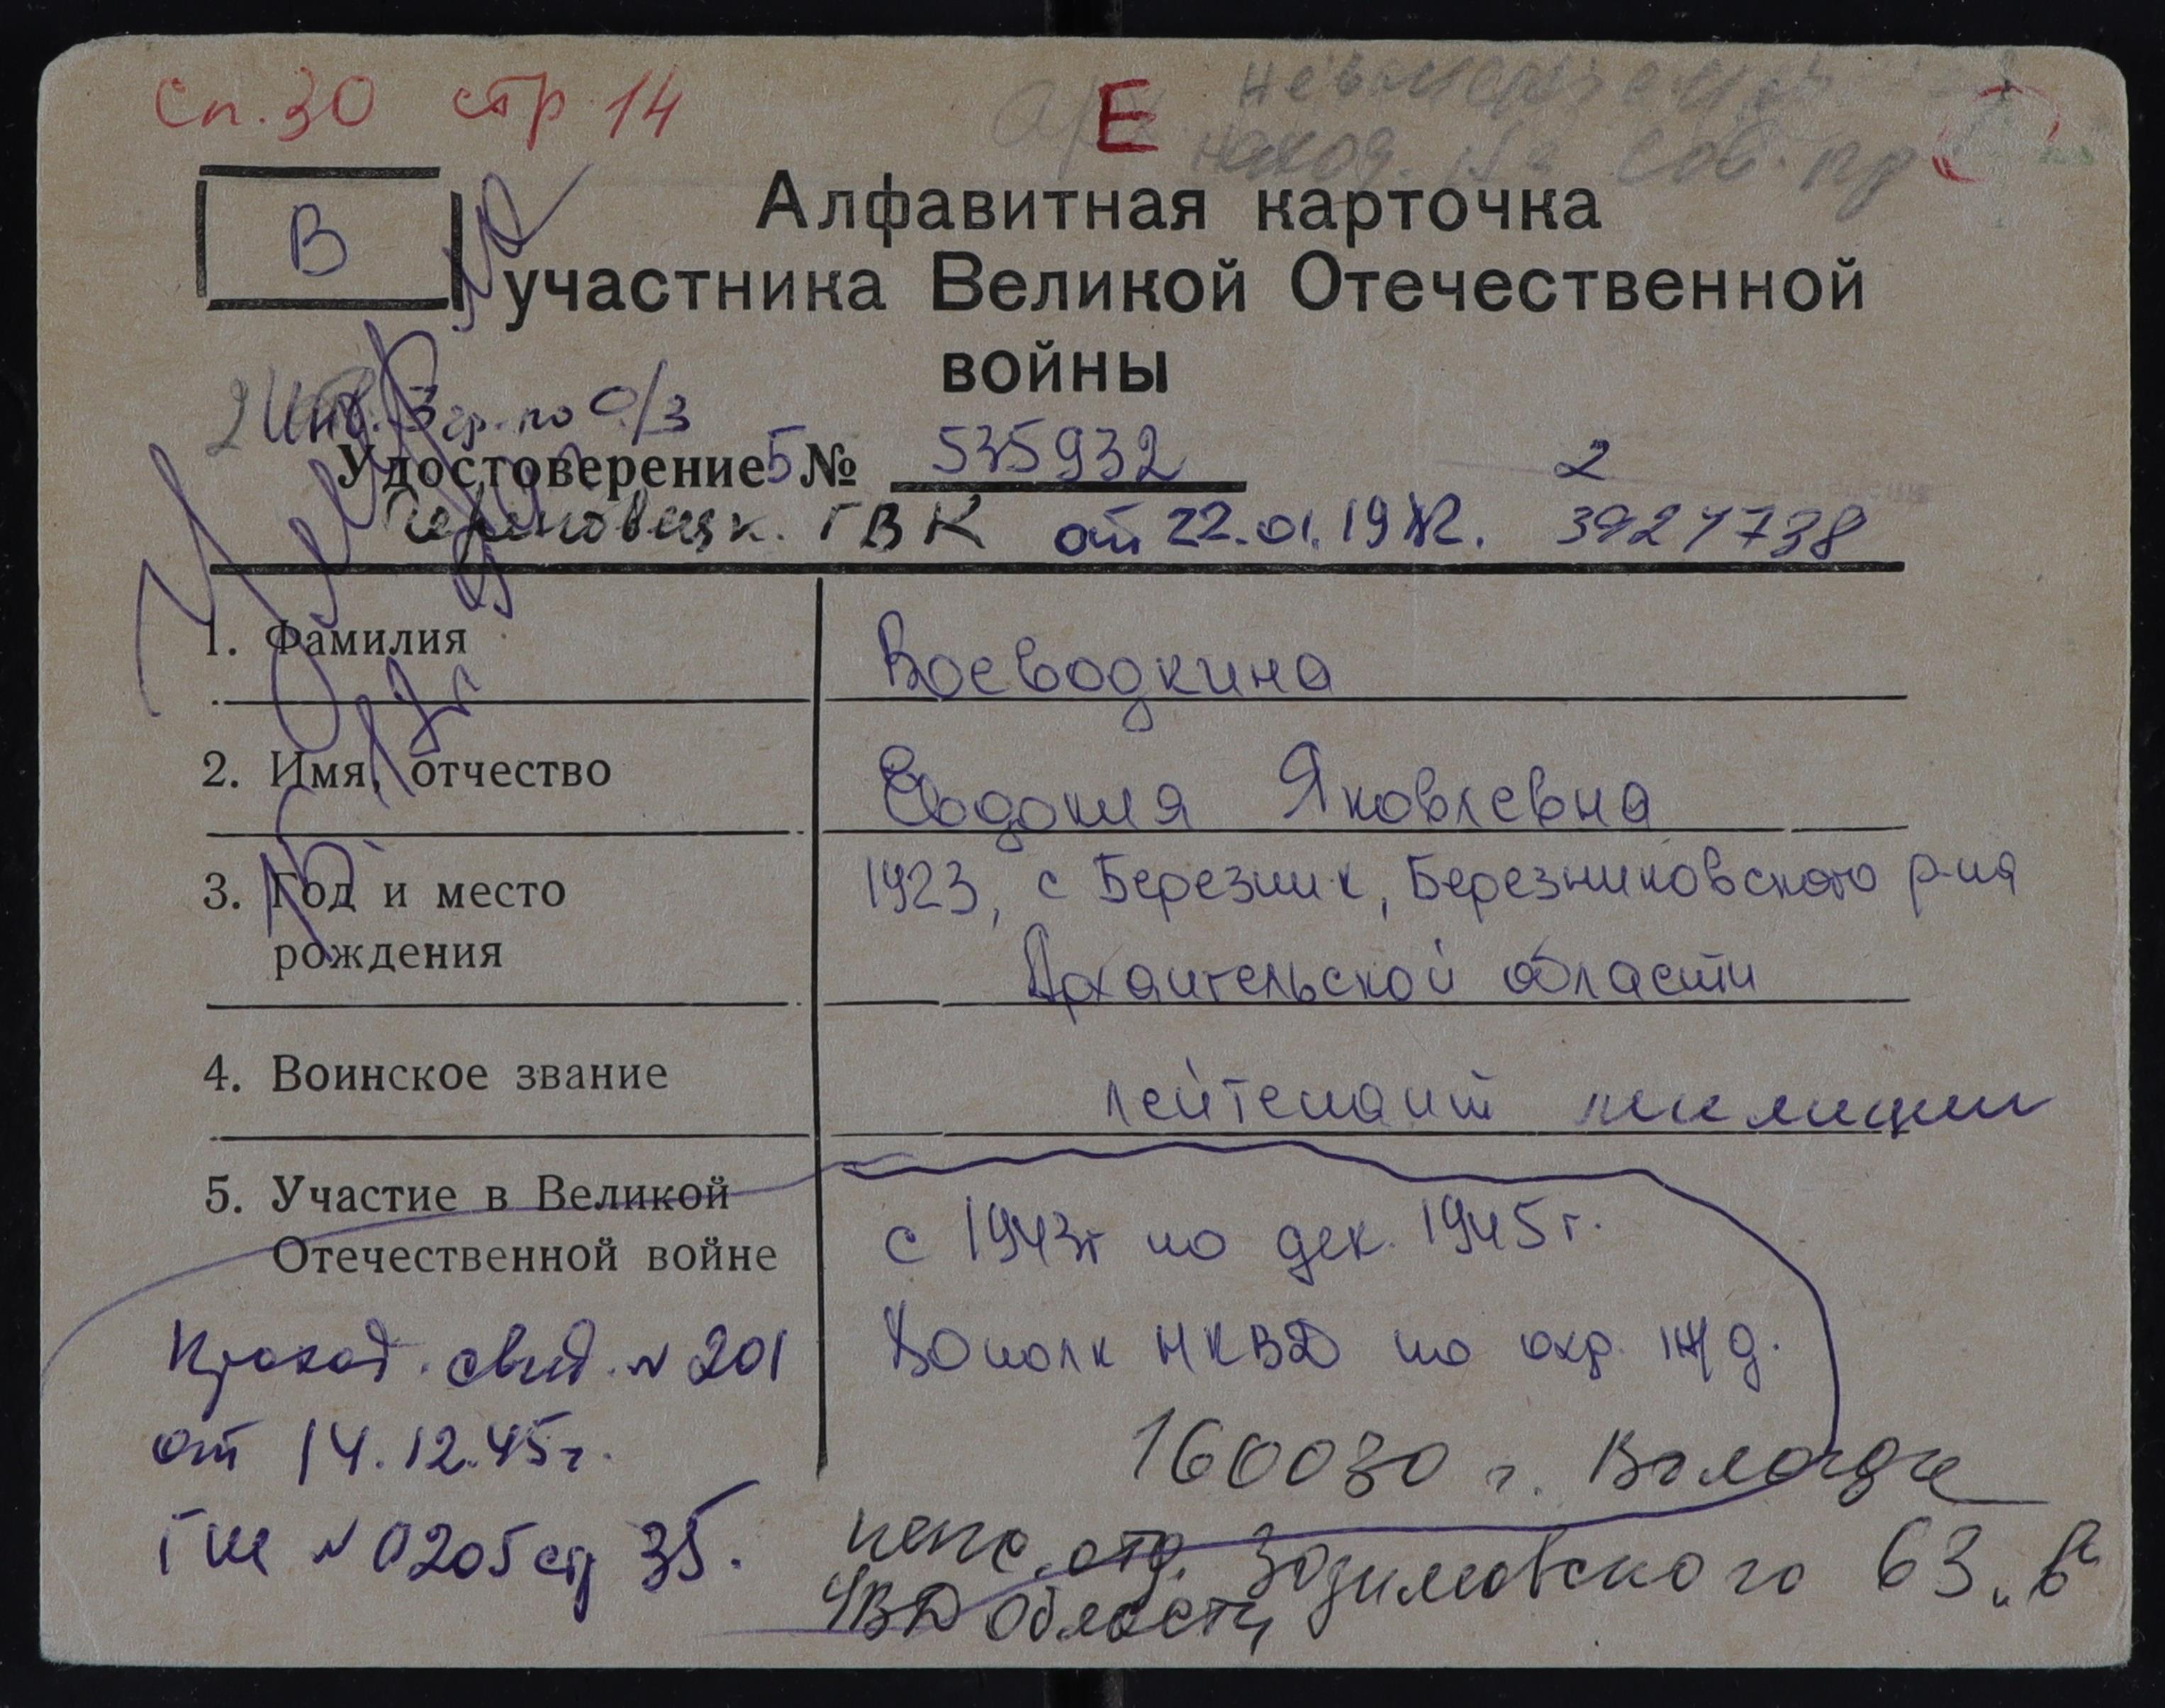 Сп. 30 стр. 14
Е
наход.
В
Алфавитная карточка
участника Великой Отечественной
войны
2 Инв. 3 гр. по О/З
Удостоверение Б № 535932 2
Череповецк. ГВК от 22.01.19 г. 3921738
1. Фамилия Воеводкина
2. Имя, отчество Евдокия Яковлевна
3. Год и место 1923, с Березник, Березниковского р-на
рождения Архангельской области
4. Воинское звание лейтенант милиции
5. Участие в Великой
Отечественной войне с 1943г по дек. 1945г.
полк НКВД по охр. ж д.
свид. N 201
от 14.12.45г.
ГШ N 0205 стр 35.
160030 г. Вологда
пенс. отд. Зосимовского 63 „б"
УВД области